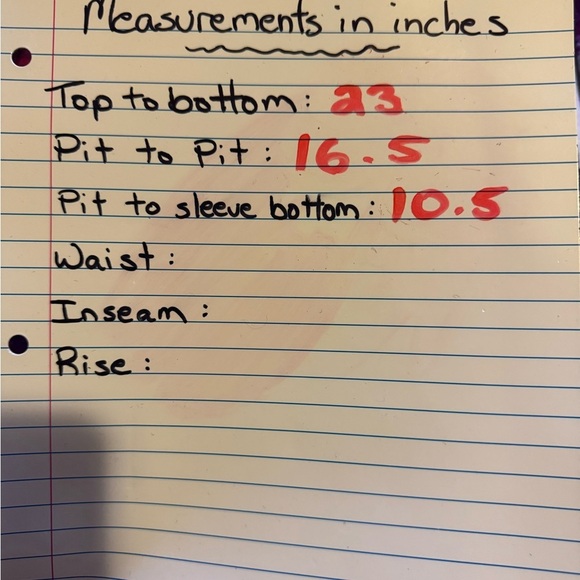 Measurements in inches
Top to bottom: 23
Pit to Pit: 16.5
Pit to sleeve bottom: 10.5
Waist:
Inseam:
Rise: